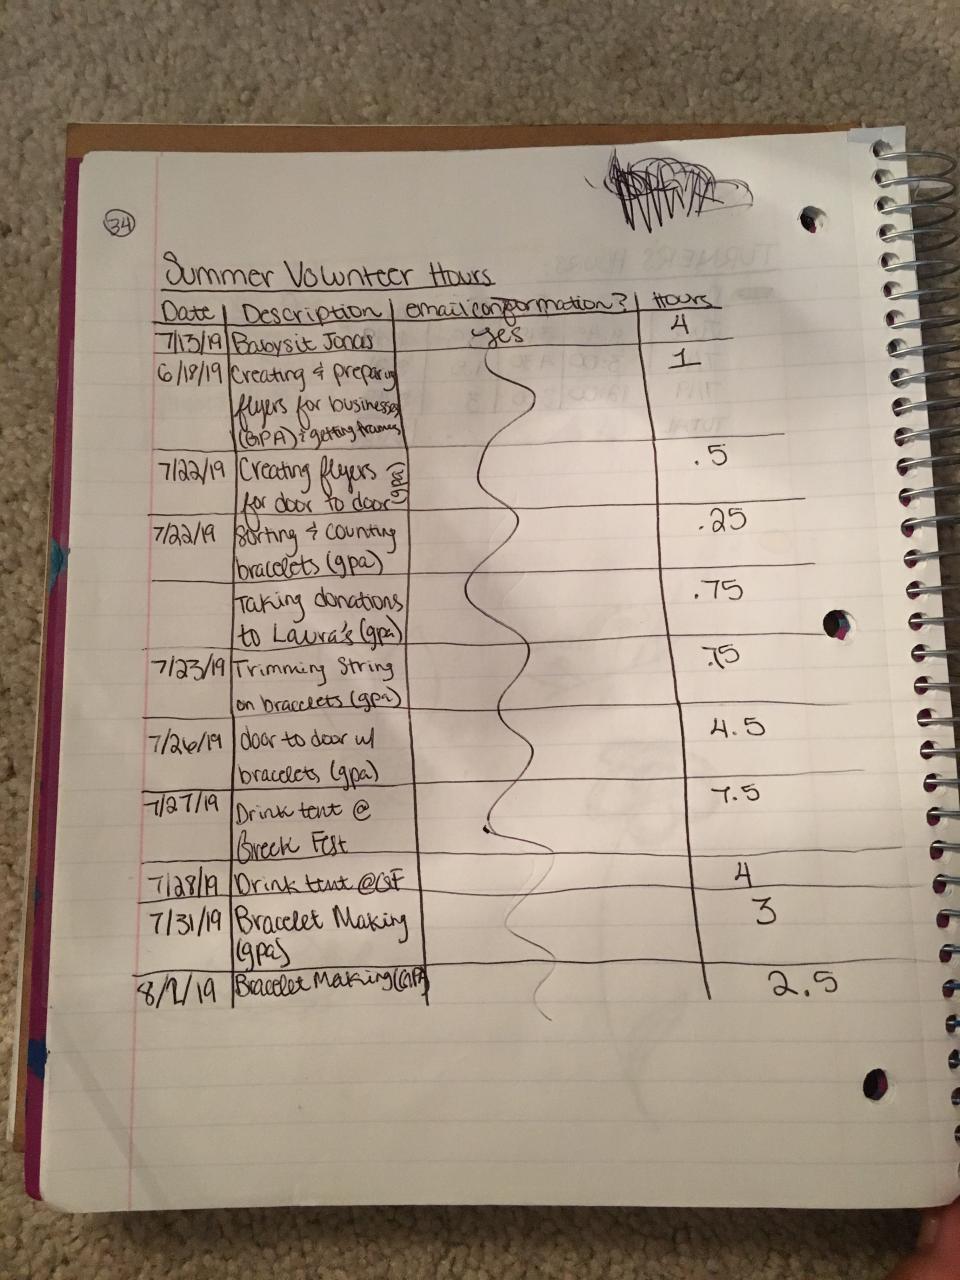 34
Summer Volunteer Hours
Date Description email conformation? Hours
7/13/19 Babysit Jonas yes 4
6/18/19 Creating & preparing 1
flyers for businesses
(GPA) & getting frames
7/22/19 Creating flyers (gpa) .5
for door to door
7/22/19 Sorting & counting .25
bracelets (gpa)
Taking donations .75
to Laura's (gpa)
7/23/19 Trimming String .75
on bracelets (gpa)
7/26/19 door to door w/ 4.5
bracelets (gpa)
7/27/19 Drink tent @ 7.5
Breck Fest
7/28/19 Drink tent @ 4
7/31/19 Bracelet Making 3
(gpa)
8/2/19 Bracelet Making (GPA) 2.5